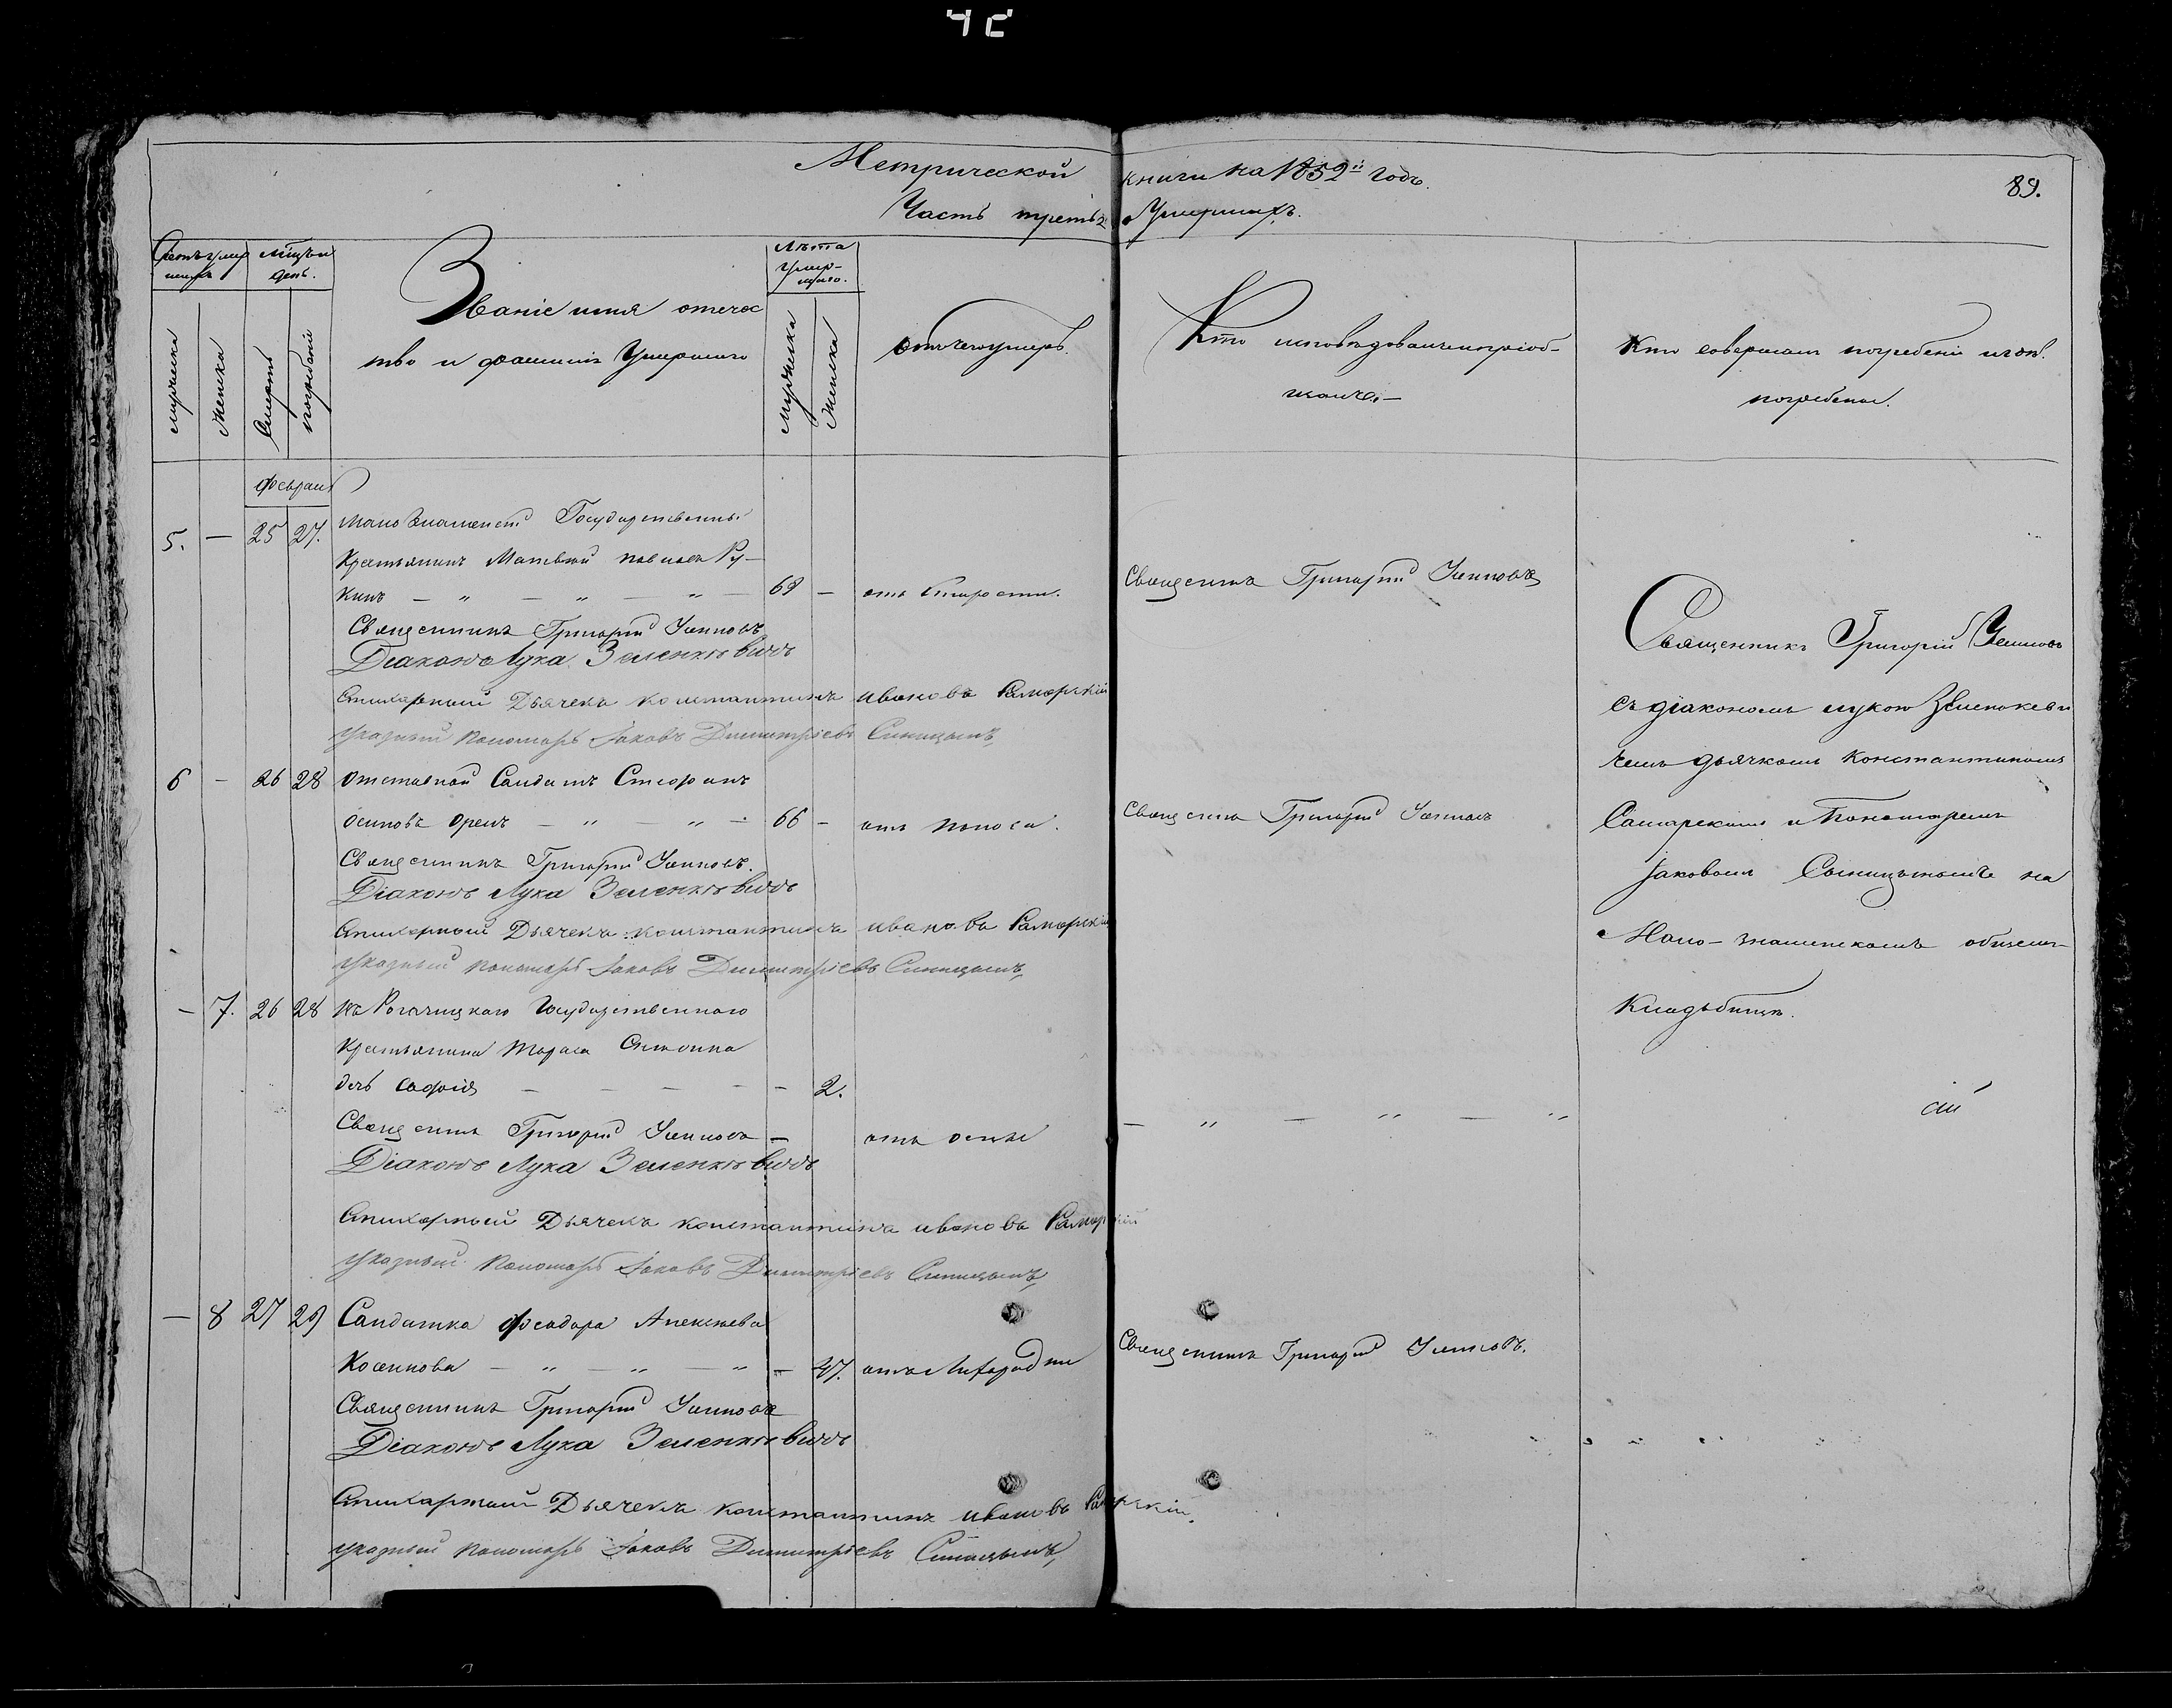 Метрической книги на 1852й Годъ.
89.
Часть третья Умершихъ.
Счетъ умер
шихъ
Мѣсяцъ и
день.
Званіе имя отечес
тво и фамилія Умершаго
Лѣта
умер-
шаго.
мужеска
женска
Смерти
погребенія
мужеска
женска
отъ чего умеръ.
Кто исповѣдовалъ и пріоб-
щалъ.
Кто совершалъ погребеніе и гдѣ
погребены.
Февраля
5. — 25 27. Малознаменской Государственный
Крестьянинъ Матвѣй Павловъ Ру-
кинъ — " — " — " — 69 — отъ старости. Священникъ Григорій
Священникъ Григорій
Діаконъ Лука Зеленкѣвичъ
Стихарный Дьячекъ Константинъ Ивановъ Самарскій
указный Пономарь Іаковъ Димитріевъ Синицынъ
6 — 26 28 Отставной Солдатъ Стефанъ
Осиповъ Орелъ — " — " — 66 — отъ поноса. Священникъ Григорій
Священникъ Григорій
Діаконъ Лука Зеленкѣвичъ
Стихарный Дьячекъ Константинъ Ивановъ Самарскій
указный Пономарь Іаковъ Димитріевъ Синицынъ
— 7. 26 28 Рогачицкаго Государственнаго
Крестьянина Тараса
дочь Софія — — — — — 2.
Священникъ Григорій — отъ оспы — " — " — "
Діаконъ Лука Зеленкѣвичъ
Стихарный Дьячекъ Константинъ Ивановъ Самарскій
указный Пономарь Іаковъ Димитріевъ Синицынъ
— 8 27 29 Солдатка Феодора Алексѣева
Косенкова — " — " — " — 47. отъ лихорадки Священникъ Григорій
Священникъ Григорій
Діаконъ Лука Зеленкѣвичъ
Стихарный Дьячекъ Константинъ Ивановъ Самарскій
указный Пономарь Іаковъ Димитріевъ Синицынъ
Священникъ Григорій
съ діакономъ Лукою Зеленкеви
чемъ дьячкомъ Константиномъ
Самарскимъ и Пономаремъ
Іаковомъ Синицынымъ на
Мало-знаменскомъ общемъ
Кладбищѣ.